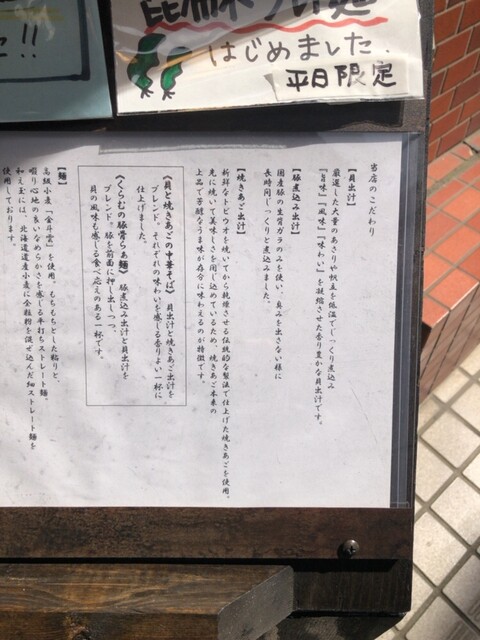 はじめました
平日限定
当店のこだわり
【貝出汁】
厳選した大量のあさりや帆立を低温でじっくり煮込み
『旨味』『風味』『味わい』を凝縮させた香り豊かな貝出汁です。
【豚煮込み出汁】
国産豚の生背ガラのみを使い、臭みを出さない様に
長時間じっくりと煮込みました。
【焼きあご出汁】
新鮮なトビウオを焼いてから乾燥させる伝統的な製法で仕上げた焼きあごを使用。
先に焼いて美味しさを閉じ込めているため、焼きあご本来の
上品で芳醇なうま味が存分に味わえるのが特徴です。
《貝と焼きあごの中華そば》 貝出汁と焼きあご出汁を
ブレンド。それぞれの味わいを感じる香りよい一杯に
仕上げました。
《くらむの豚骨らぁ麺》 豚煮込み出汁と貝出汁を
ブレンド。豚を前面に押し出しつつ、
貝の風味も感じる食べ応えのある一杯です。
【麺】
高級小麦「金斗雲」を使用。もちもちとした粘りと
啜り心地の良いなめらかさを感じる平打ちストレート麺
和え玉には、北海道道産小麦に全粒粉を混ぜ込んだ細ストレート麺を
使用しております。